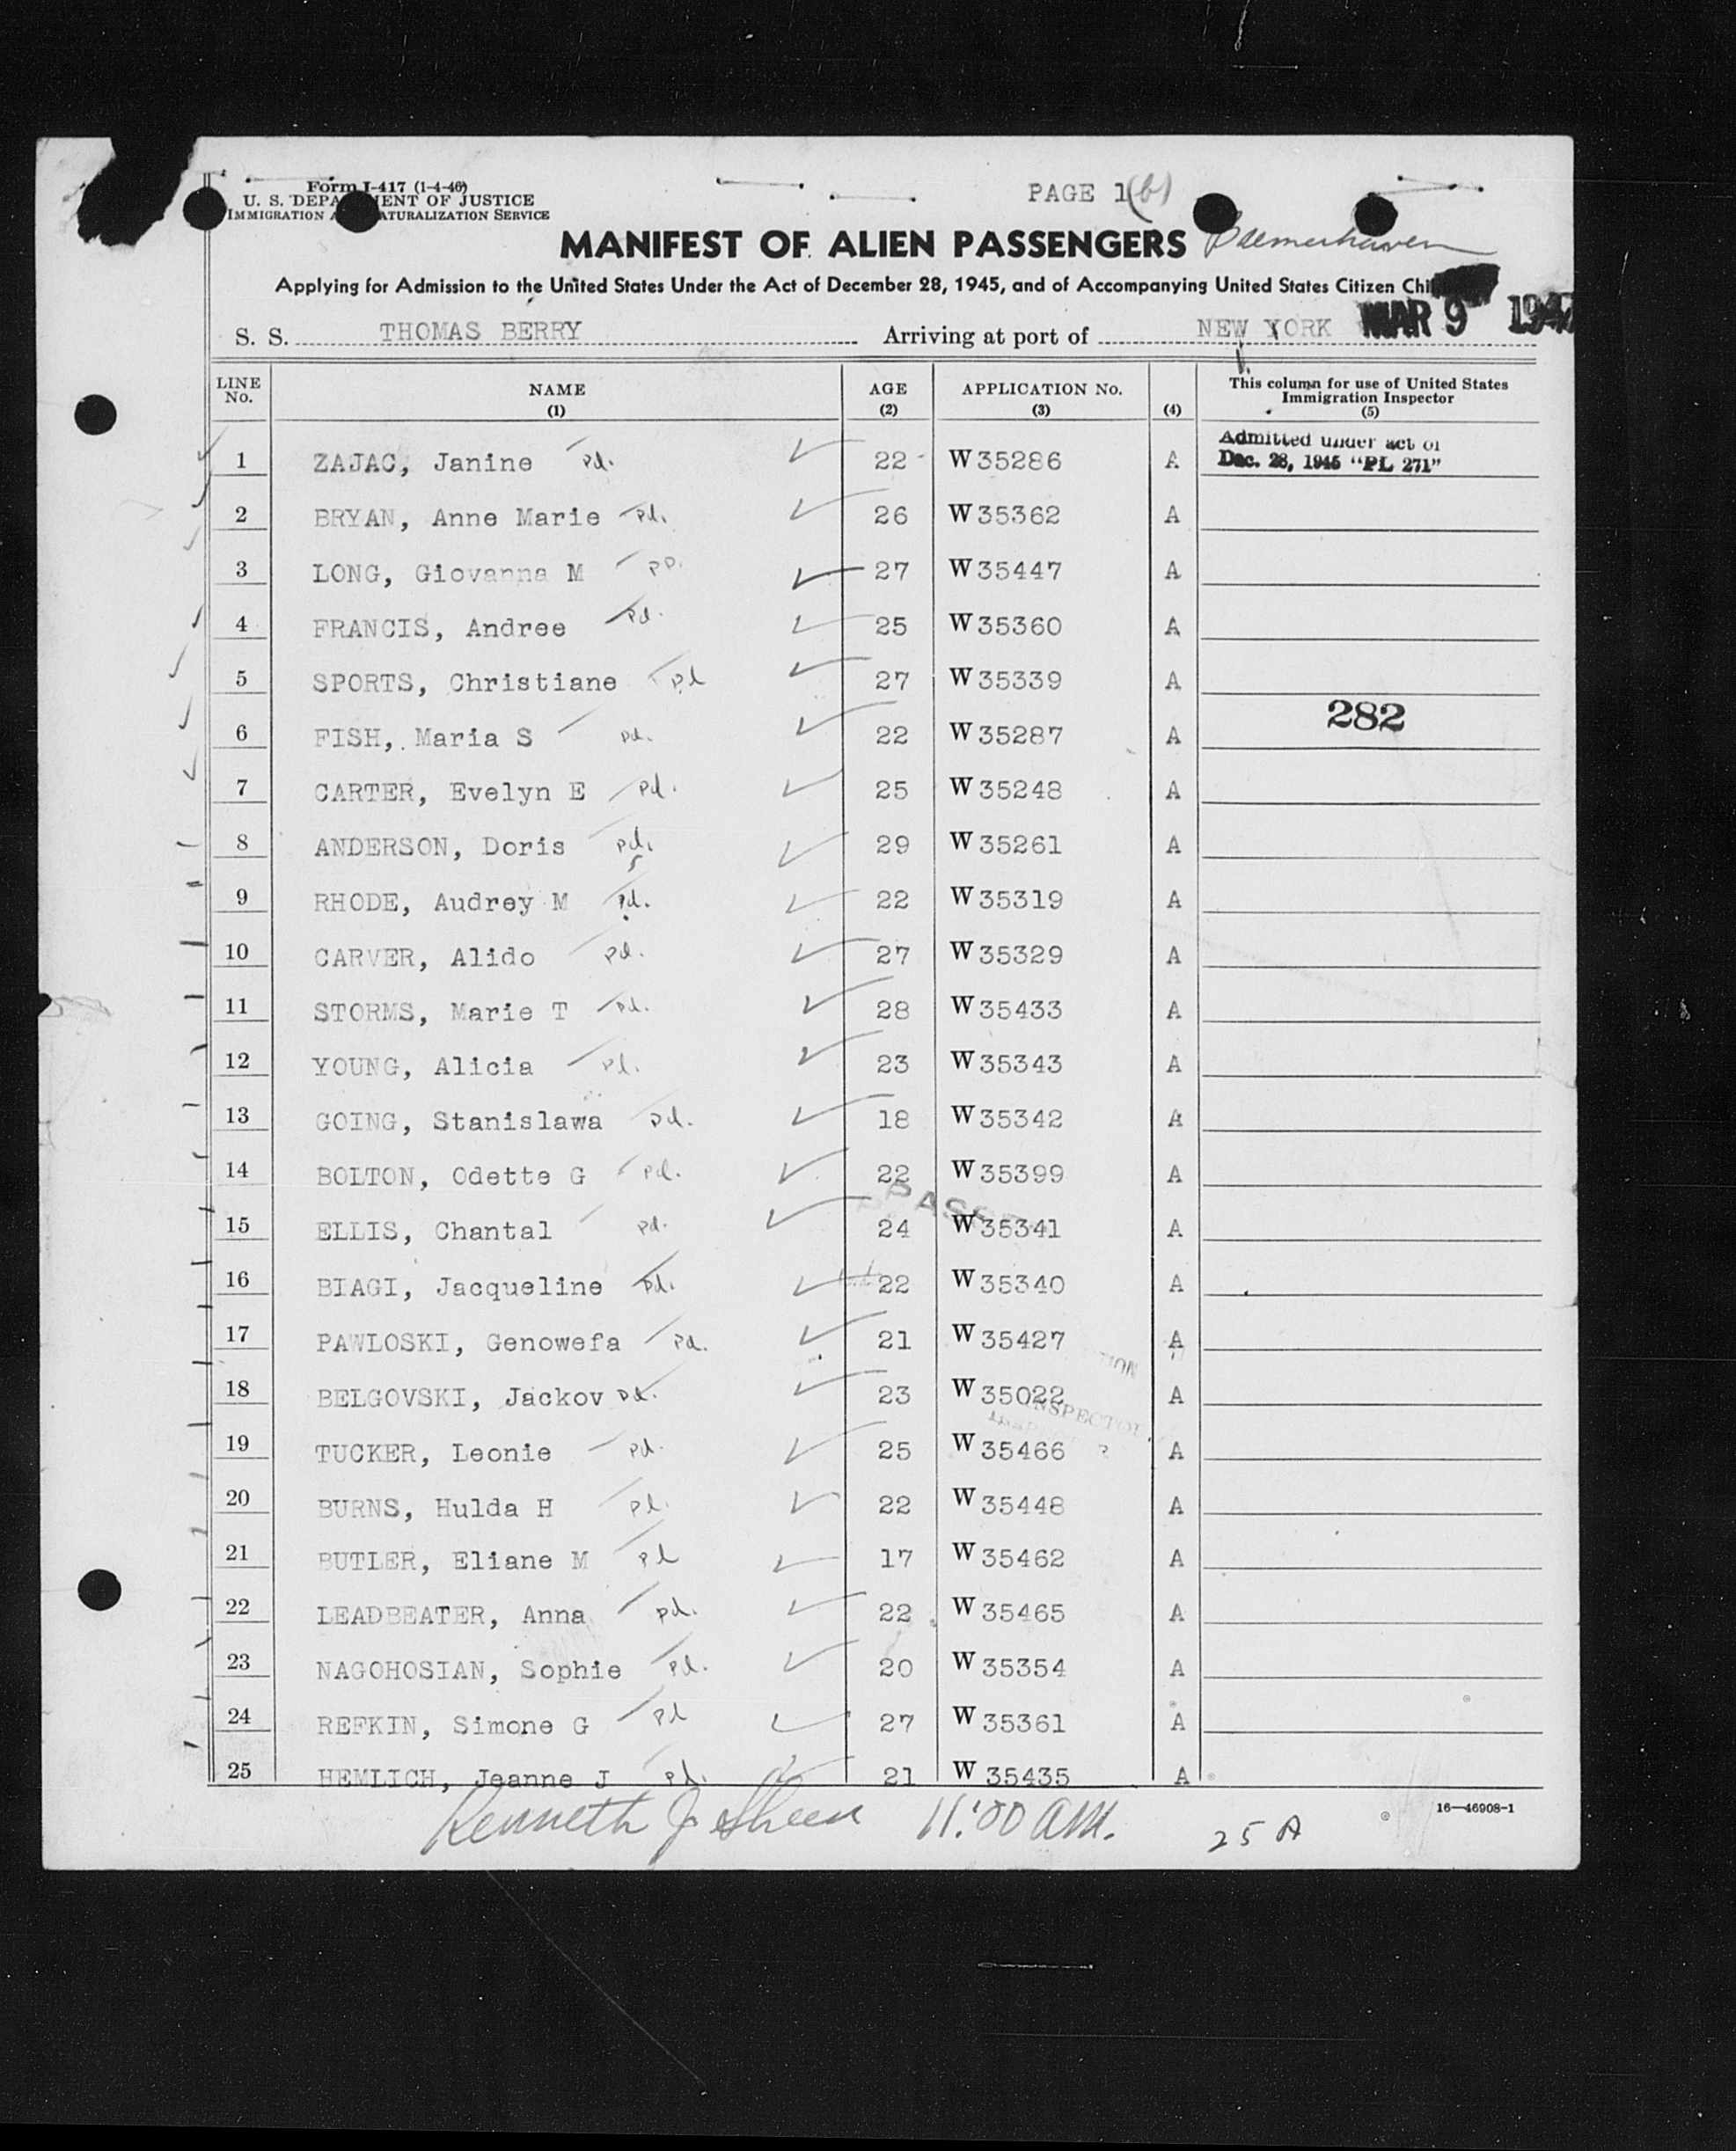 Form I-417 (1-4-46)
PAGE 1(b)
U. S. DEPARTMENT OF JUSTICE
IMMIGRATION AND NATURALIZATION SERVICE
MANIFEST OF ALIEN PASSENGERS Bremerhaven
Applying for Admission to the United States Under the Act of December 28, 1945, and of Accompanying United States Citizen Chi
S. S. THOMAS BERRY Arriving at port of NEW YORK MAR 9 1947
LINE No. NAME (1) AGE (2) APPLICATION No. (3) (4) This column for use of United States Immigration Inspector (5)
1 ZAJAC, Janine Pd. 22 W 35286 A Admitted under act of Dec. 28, 1945 "PL 271"
2 BRYAN, Anne Marie Pd. 26 W 35362 A
3 LONG, Giovanna M PD. 27 W 35447 A
4 FRANCIS, Andree Pd. 25 W 35360 A
5 SPORTS, Christiane Pd 27 W 35339 A
282
6 FISH, Maria S Pd. 22 W 35287 A
7 CARTER, Evelyn E Pd. 25 W 35248 A
8 ANDERSON, Doris Pd. 29 W 35261 A
9 RHODE, Audrey M Pd. 22 W 35319 A
10 CARVER, Alido Pd. 27 W 35329 A
11 STORMS, Marie T Pd. 28 W 35433 A
12 YOUNG, Alicia Pd. 23 W 35343 A
13 GOING, Stanislawa Pd. 18 W 35342 A
14 BOLTON, Odette G Pd. 22 W 35399 A
15 ELLIS, Chantal Pd. 24 W 35341 A
16 BIAGI, Jacqueline Pd. 22 W 35340 A
17 PAWLOSKI, Genowefa Pd. 21 W 35427 A
18 BELGOVSKI, Jackov Pd. 23 W 35022 A
INSPECTOR
19 TUCKER, Leonie Pd. 25 W 35466 A
20 BURNS, Hulda H Pd. 22 W 35448 A
21 BUTLER, Eliane M Pd 17 W 35462 A
22 LEADBEATER, Anna Pd. 22 W 35465 A
23 NAGOHOSIAN, Sophie Pd. 20 W 35354 A
24 REFKIN, Simone G Pd 27 W 35361 A
25 HEMLICH, Jeanne J Pd. 21 W 35435 A
16—46908-1
Kenneth J Sheen 11:00 AM. 25 A